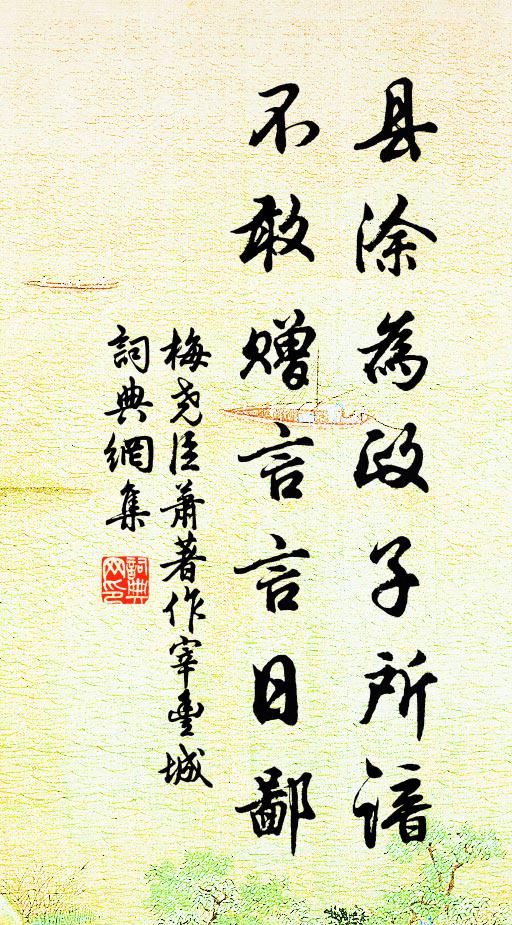 县涂為政子所谙
不敢赠言言日鄙
梅尧臣萧著作宰豐城
詞典網集
詞典网印